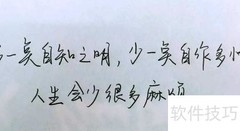 一奌自知之明，少一奌自作多
人生会少很多麻烦
软件技巧